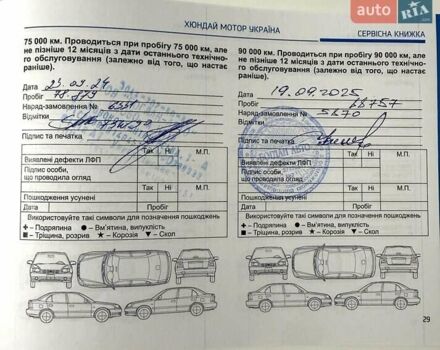 auto.RIA.com
ХЮНДАЙ МОТОР УКРАЇНА
СЕРВІСНА КНИЖКА
75 000 км. Проводиться при пробігу 75 000 км, але
не пізніше 12 місяців з дати останнього технічно-
го обслуговування (залежно від того, що настає
раніше).
Дата 23.09.24
Пробіг 78.879
Наряд-замовлення № 6331
Відмітки
Підпис та печатка
Так Ні М.П.
Виявлені дефекти ЛФП
Підпис особи,
що проводила огляд
Так Ні М.П.
Пошкодження усунені
Дата Пробіг
Використовуйте такі символи для позначення пошкоджень
+ - Подряпина ● - Вм'ятина, випуклість
■ - Тріщина, розрив ★ - Корозія ▼ - Скол
90 000 км. Проводиться при пробігу 90 000 км, але
не пізніше 12 місяців з дати останнього технічно-
го обслуговування (залежно від того, що настає
раніше).
Дата 19.09.2025
Пробіг 88757
Наряд-замовлення № 5870
Відмітки
Підпис та печатка
Так Ні М.П.
Виявлені дефекти ЛФП
Підпис особи,
що проводила огляд
Так Ні М.П.
Пошкодження усунені
Дата Пробіг
Використовуйте такі символи для позначення пошкоджень
+ - Подряпина ● - Вм'ятина, випуклість
■ - Тріщина, розрив ★ - Корозія ▼ - Скол
29